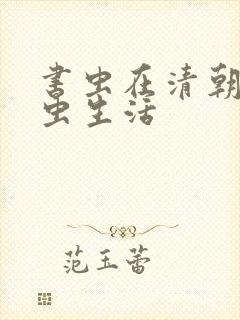 书虫在清朝
虫生活
范玉蕾